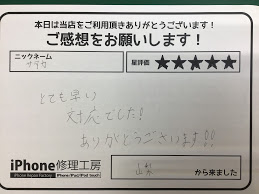 本日は当店をご利用頂きありがとうございます！
ご感想をお願いします！
ニックネーム
サヤカ
星評価 ★★★★★
とても早い
対応でした！
ありがとうございます!!
iPhone修理工房
iPhone Repair Factory
iPhone/iPad/iPod touch
山梨
から来ました